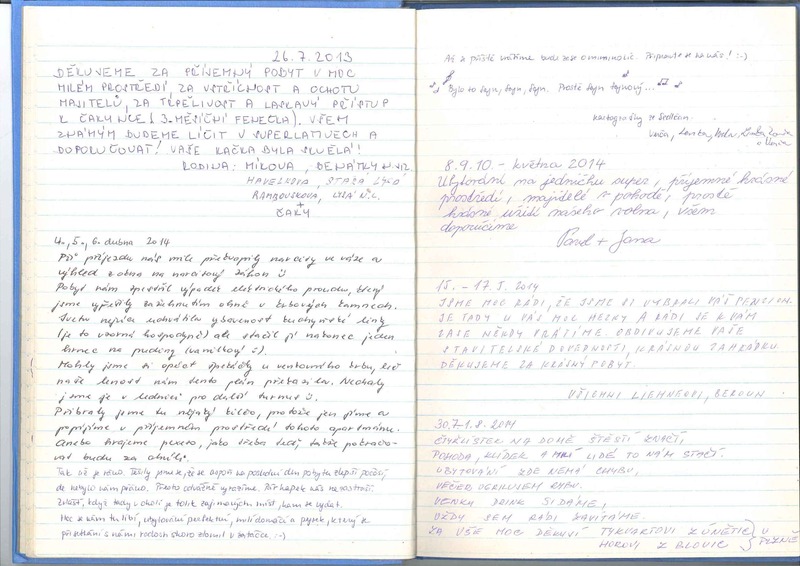 26.7.2013
DĚKUJEME ZA PŘÍJEMNÝ POBYT V MOC
MILÉM PROSTŘEDÍ, ZA VSTŘÍCNOST A OCHOTU
MAJITELŮ, ZA TRPĚLIVOST A LASKAVÝ PŘÍSTUP
K ČAKYNCE (3-MĚSÍČNÍ FENEČKA). VŠEM
ZNÁMÝM BUDEME LÍČIT V SUPERLATIVECH A
DOPORUČOVAT! VAŠE KAČKA BYLA SKVĚLÁ!
RODINA: MÍKOVA, BENÁTKY N. JIZ.
HAVELKOVA, STARÁ LYSÁ
RAMBOUSKOVA, LYSÁ N. L.
+
ČAKY
4., 5., 6. dubna 2014
Při příjezdu nás mile překvapily narcisy ve váze a
výhled z okna na narcisový záhon
Pobyt nám zpestřil výpadek elektrického proudu, který
jsme vyřešily zažehnutím ohně v krbových kamnech.
Jsou tu nejvíce nadchla vybavenost kuchyňské linky
(je to vzorná hospodyně) ale stačil jí nakonec jeden
hrnec na puding (vanilkový).
Mohly jsme si opéct špekáčky u venkovního krbu, leč
naše lenost nám tento plán překazila. Nechaly
jsme je v lednici pro další turnus
Přibraly jsme tu nějaký kilčo, protože jen jíme a
popíjíme v příjemném prostředí tohoto apartmánu.
Anebo hrajeme pexeso, jako třeba teď, takže pokračo-
vat budu za chvíli.
Tak už je ráno. Těšily jsme se, že se aspoň na poslední den pobytu zlepší počasí,
ale nebylo nám přáno. Přesto odvážně vyrazíme. Pár kapek nás nezastraší.
Zvlášť, když tady v okolí je tolik zajímavých míst, kam se vydat.
Moc se nám tu líbí, ubytování perfektní, milí domácí a pejsek, který se
při setkání s námi radostí skoro zlomil v zatáčce :-)
Až se příště vrátíme bude zase o mnoho víc. Připravte se na nás! :-)
Bylo to fajn, fajn, fajn. Prostě fajn fajnový...
kartografky ze Sedlčan
8.9.10. - května 2014
Ubytování na jedničku super, příjemné krásné
prostředí, majitelé v pohodě, prostě
krásné užití našeho volna, všem
doporučíme
Pavel + Jana
15. - 17. 5. 2014
JSME MOC RÁDI, ŽE JSME SI VYBRALI VÁŠ PENSION.
JE TADY U VÁS MOC HEZKY A RÁDI SE K VÁM
ZASE NĚKDY VRÁTÍME. OBDIVUJEME VAŠE
STAVITELSKÉ DOVEDNOSTI, KRÁSNOU ZAHRÁDKU.
DĚKUJEME ZA KRÁSNÝ POBYT.
VŠICHNI LIEHNEOVI, BEROUN
30.7.-1.8. 2014
ČTYŘLÍSTEK NA DOMĚ ŠTĚSTÍ ZNAČÍ,
POHODA, KLÍDEK A MILÍ LIDÉ TO NÁM STAČÍ.
UBYTOVÁNÍ ZDE NEMÁ CHYBU,
VEČER UGRILUJEM RYBU.
VENKU DRINK SI DÁME,
VŽDY SEM RÁDI ZAVÍTÁME.
ZA VŠE MOC DĚKUJÍ TYKVARTOVI Z ÚNĚTIC
HOROVY Z BLOVIC } U PLZNĚ